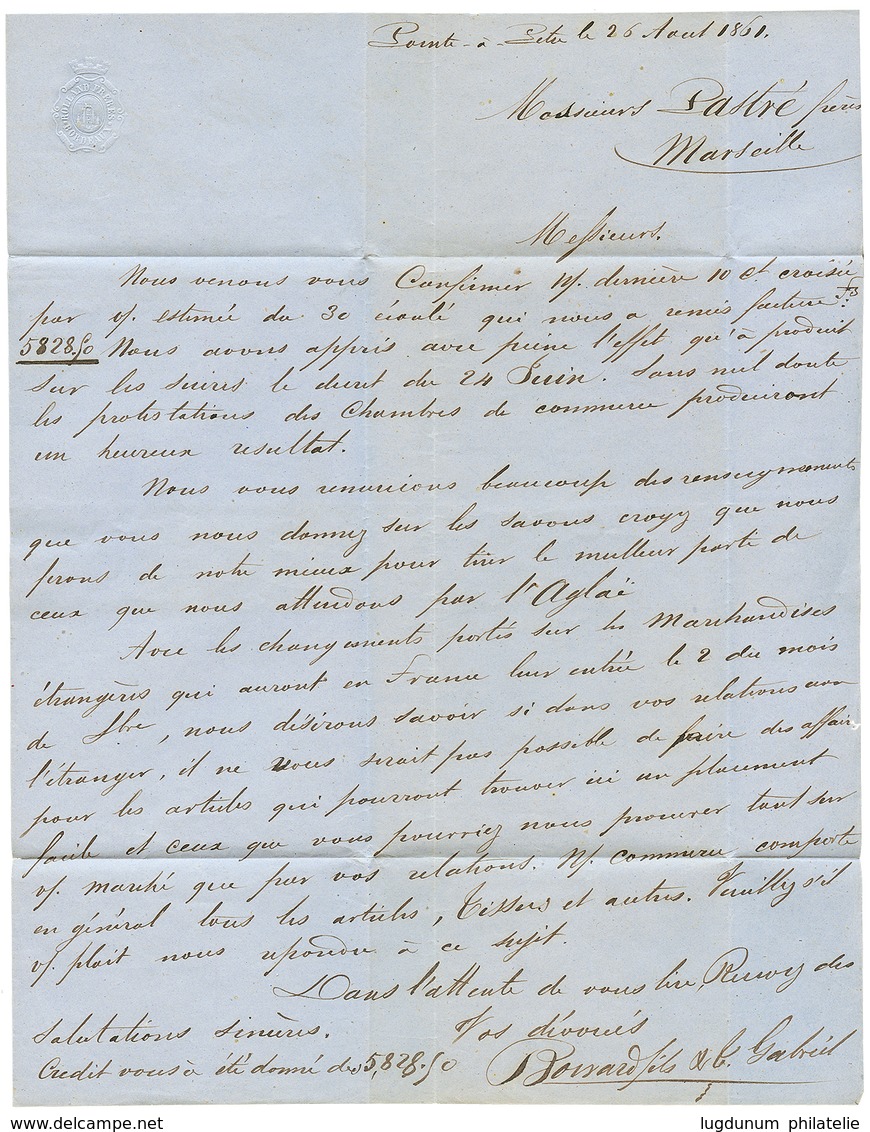 Pointe-à-Pitre le 26 Aout 1861.
ROLLAND FRERES
BORDEAUX
Messieurs Pastré frères
Marseille
Messieurs.
Nous venons vous Confirmer N/. dernière 10 ct croisée
par v/. estimée du 30 écoulé qui nous a remis facture
5828.50 Nous avons appris avec peine l'effet qu'à produit
sur les sucres le decret du 24 Juin. Sans nul doute
les protestations des Chambres de commerce produiront
un heureux resultat.
Nous vous remercions beaucoup des renseignements
que vous nous donnez sur les savons croyez que nous
ferons de notre mieux pour tirer le meilleur parti de
ceux que nous attendons par l'Aglaé
Avec les changements portés sur les Marchandises
étrangères qui auront en France leur entrée le 2 du mois
de 9bre, nous désirons savoir si dans vos relations avec
l'étranger, il ne vous serait pas possible de faire des affaires
pour les articles qui pourront trouver ici un placement
facile et ceux que vous pourriez nous procurer tant sur
v/. marché que par vos relations. N/. commerce comporte
en général tous les articles, Tissus et autres. Veuillez s'il
v/. plait nous repondre à ce sujet.
Dans l'attente de vous lire, Recevez des
salutations sincères.
Vos dévoués
Credit vous à été donné de 5,828.50
fils & C. Gabriel
lugdunum philatelie